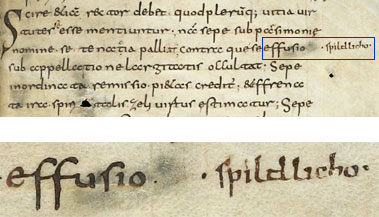 Scire & iā rector debet quod plerūq; uitia uir
tutes se esse mentiuntur. nā sepe sub parsimonie
nomine se tenatia palliat contraque se effusio · spildlicho ·
sub appellatione largitatis occultat. Sepe
inordinata remissio pi&as credit̄. & effrena
ta ira spiritalis zeli uirtus estimatur; Sepe
effusio. · spildlicho·